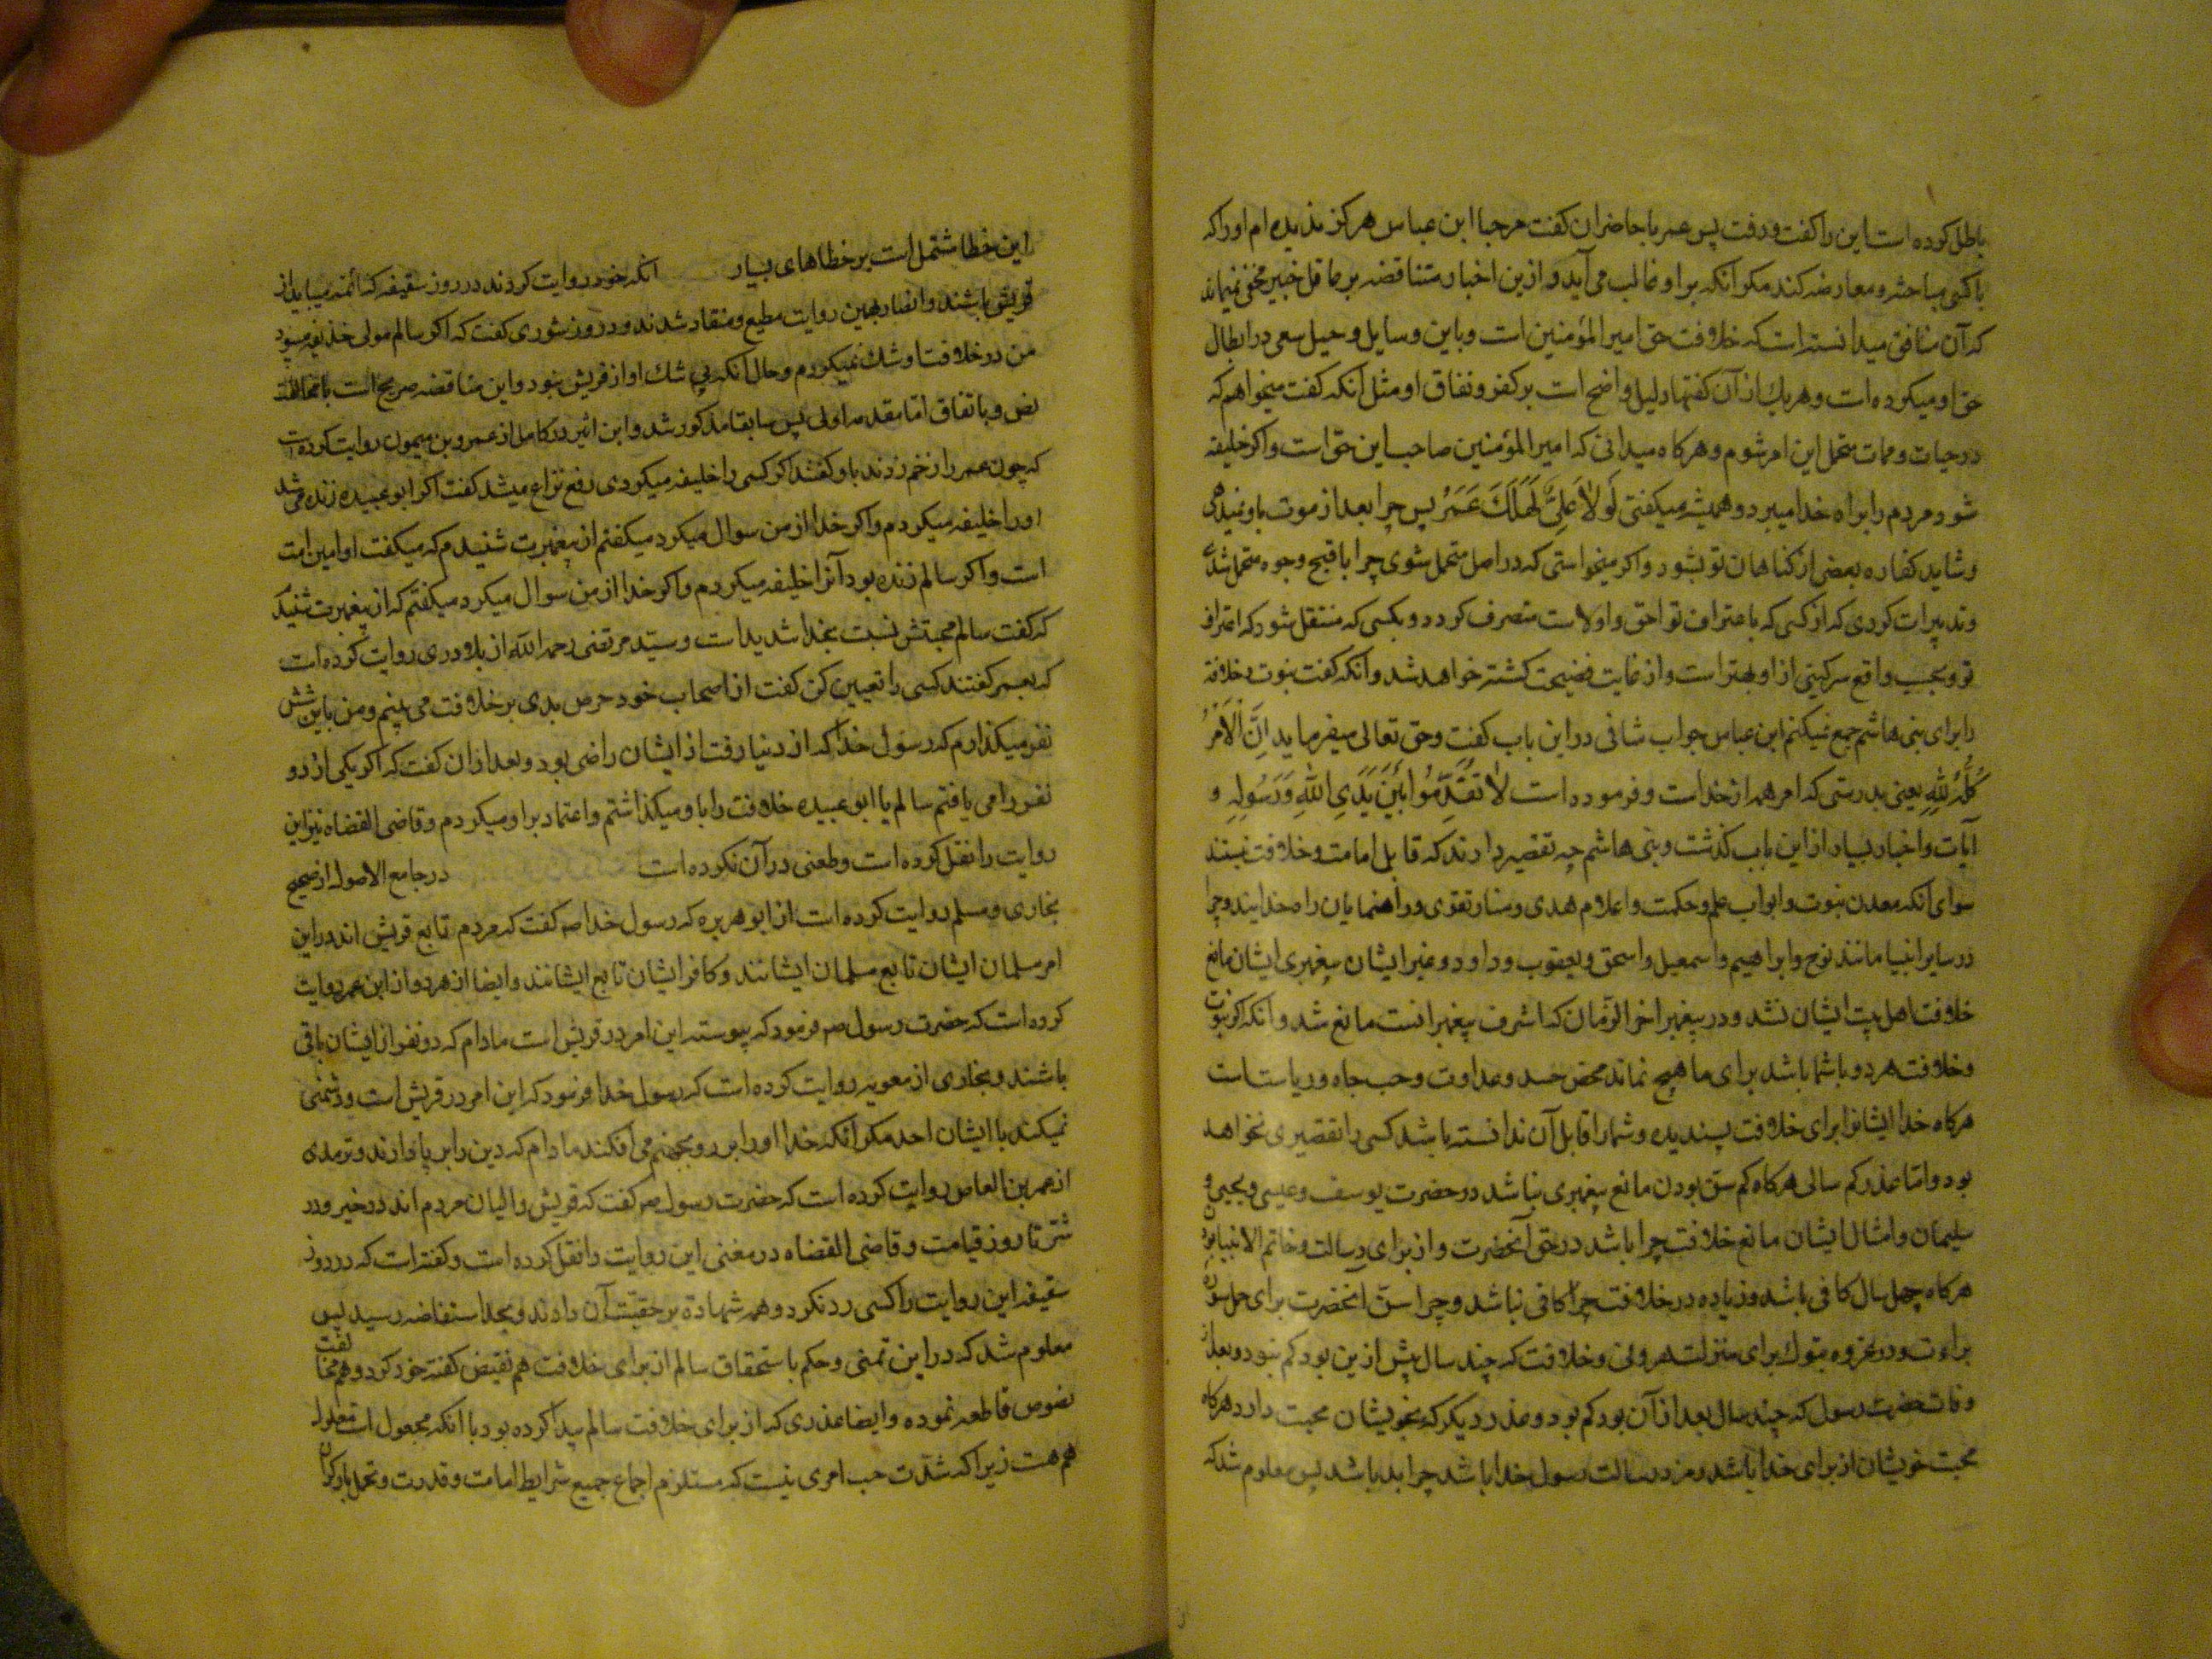 باطل کرده است این را کفت و رفت پس عمر با حاضران کفت مرحبا ابن عباس هرکز ندیده ام او را که
با کسی مباحثه و معارضه کند مکر آنکه بر او غالب می آید و ازین اخبار متناقضه بر عاقل خبیر مخفی نمیماند
که آن منافق میدانسته است که خلافت حق امیر المؤمنین است و باین وسایل و حیل سعی در ابطال
حق او میکرده است و هر یك از آن کفتها دلیل واضح است بر کفر و نفاق او مثل آنکه کفت میخواهم که
در حیات و ممات متحمل این امر شوم و هرکاه میدانی که امیر المؤمنین صاحب این حق است و اکر خلیفه
شود مردم را براه خدا میبرد و همیشه میکفتی لَوْلاٰ عَلِیٌّ لَهَلَكَ عُمَرُ پس چرا بعد از موت باو نمیدهی
و شاید کفاره بعضی از کناهان تو بشود و اکر میخواستی که در اصل متحمل شوی چرا باقبح وجوه متحمل شدی
و تدبیرات کردی که از کسی که باعتراف تو احق و اولاست منصرف کردد و بکسی که منتقل شود که اعتراف
تو و بحسب واقع سرکینی از او بهتر است و از غایت فضیحت کشته خواهد شد و آنکه کفت نبوت و خلافة
را برای بنی هاشم جمع نمیکنم ابن عباس جواب شافی در این باب کفت و حق تعالی میفرماید اِنَّ الْاَمْرَ
كُلَّهُ لِلّٰهِ یعنی بدرستی که امر همه از خداست و فرموده است لاٰ تُقَدِّمُوا بَیْنَ یَدَیِ اللّٰهِ وَ رَسُولِهِ و
آیات و اخبار بسیار از این باب کذشت و بنی هاشم چه تقصیر دارند که قابل امامت و خلافت نیستند
سوای آنکه معدن نبوت و ابواب علم و حکمت و اعلام هدی و منار تقوی و راهنمایان راه خدایند و چرا
در سایر انبیا مانند نوح و ابراهیم و اسمعیل و اسحق و یعقوب و داود و غیر ایشان پیغمبری ایشان مانع
خلافت اهل بیت ایشان نشد و در پیغمبر اخر الزمان که اشرف پیغمبرانست مانع شد و آنکه اکر نبوت
و خلافت هر دو با شما باشد برای ما هیچ نماند محض حسد و عداوت و حب جاه و ریاست است
هرکاه خدا ایشانرا برای خلافت پسندیده و شما را قابل آن ندانسته باشد کسی را تقصیری نخواهد
بود و اما عذر کم سالی هرکاه کم سن بودن مانع پیغمبری نباشد در حضرت یوسف و عیسی و یحیی و
سلیمان و امثال ایشان مانع خلافت چرا باشد در حق آنحضرت و از برای رسالت و خاتم الانبیا بودن
هرکاه چهل سال کافی باشد و زیاده در خلافت چرا کافی نباشد و چرا سن آنحضرت برای حمل سورۀ
براءت و در غزوه تبوك برای منزلت هرونی و خلافت که چند سال پیش ازین بود کم نبود و بعد از
وفات حضرت رسول که چند سال بعد از آن بود کم بود و عذر دیکر که بخویشان محبت دارد هرکاه
محبت خویشان از برای خدا باشد و در رسالت رسول خدا باشد چرا بد باشد پس معلوم شد که
این خطا مشتمل است بر خطاهای بسیار آنکه خود روایت کردند در روز سقیفه که ائمه میباید از
قریش باشند و انصار بهمین روایت مطیع و منقاد شدند و در روز شوری کفت که اکر سالم مولی حذیفه میبود
من در خلافت او شك نمیکردم و حال آنکه بی شك او از قریش نبود و این مناقضه صریح است با مخالفت
نص و باتفاق اما مقدمه اولی پس سابقا مذکور شد و ابن اثیر در کامل از عمرو بن میمون روایت کرده است
که چون عمر را زخم زدند باو کفتند اکر کسی را خلیفه میکردی رفع نزاع میشد کفت اکر ابو عبیده زنده می شد
او را خلیفه میکردم و اکر خدا از من سوال میکرد میکفتم از پیغمبرت شنیدم که میکفت او امین امت
است و اکر سالم زنده بود آنرا خلیفه میکردم و اکر خدا از من سوال میکرد میکفتم که از پیغمبرت شنیدم
که کفت سالم محبتش نسبت بخدا شدید است و سید مرتضی رحمه اللّه از بلاذری روایت کرده است
که بعمر کفتند کسی را تعیین کن کفت از اصحاب خود حرص بدی بر خلافت می بینم و من باین شش
نفر میکذارم که رسول خدا که از دنیا رفت از ایشان راضی بود و بعد از ان کفت که اکر یکی از دو
نفر را می یافتم سالم یا ابو عبیده خلافت را باو میکذاشتم و اعتماد بر او میکردم و قاضی القضاه نیز این
روایت را نقل کرده است و طعنی در آن نکرده است در جامع الاصول از صحیح
بخاری و مسلم روایت کرده است از ابو هریره که رسول خدا صه کفت که مردم تابع قریش اند در این
امر مسلمان ایشان تابع مسلمان ایشانند و کافر ایشان تابع ایشانند و ایضا از هر دو از ابن عمر روایت
کرده است که حضرت رسول صه فرمود که پیوسته این امر در قریش است مادام که دو نفر از ایشان باقی
باشند و بخاری از معویه روایت کرده است که رسول خدا فرمود که این امر در قریش است و دشمنی
نمیکند با ایشان احد مکر آنکه خدا او را بر رو بجهنم می افکند مادام که دین را بر پا دارند و ترمذی
از عمر بن العاص روایت کرده است که حضرت رسول صه کفت که قریش والیان مردم اند در خیر و در
شر تا روز قیامت و قاضی القضاه در مغنی این روایت را نقل کرده است و کفته است که در روز
سقیفه این روایت را کسی رد نکرد و همه شهادة بر حقیّت آن دادند و بحد استفاضه رسید پس
معلوم شد که در این تمنی و حکم باستحقاق سالم از برای خلافت هم نقیض کفته خود کرد و هم مخالفت
نصوص قاطعه نموده و ایضا عذری که از برای خلافت سالم پیدا کرده بود با آنکه مجعول است معلول
هم هست زیرا که شدّت حب امری نیست که مستلزم اجماع جمیع شرایط امامت و قدرت و تحمل بار کران